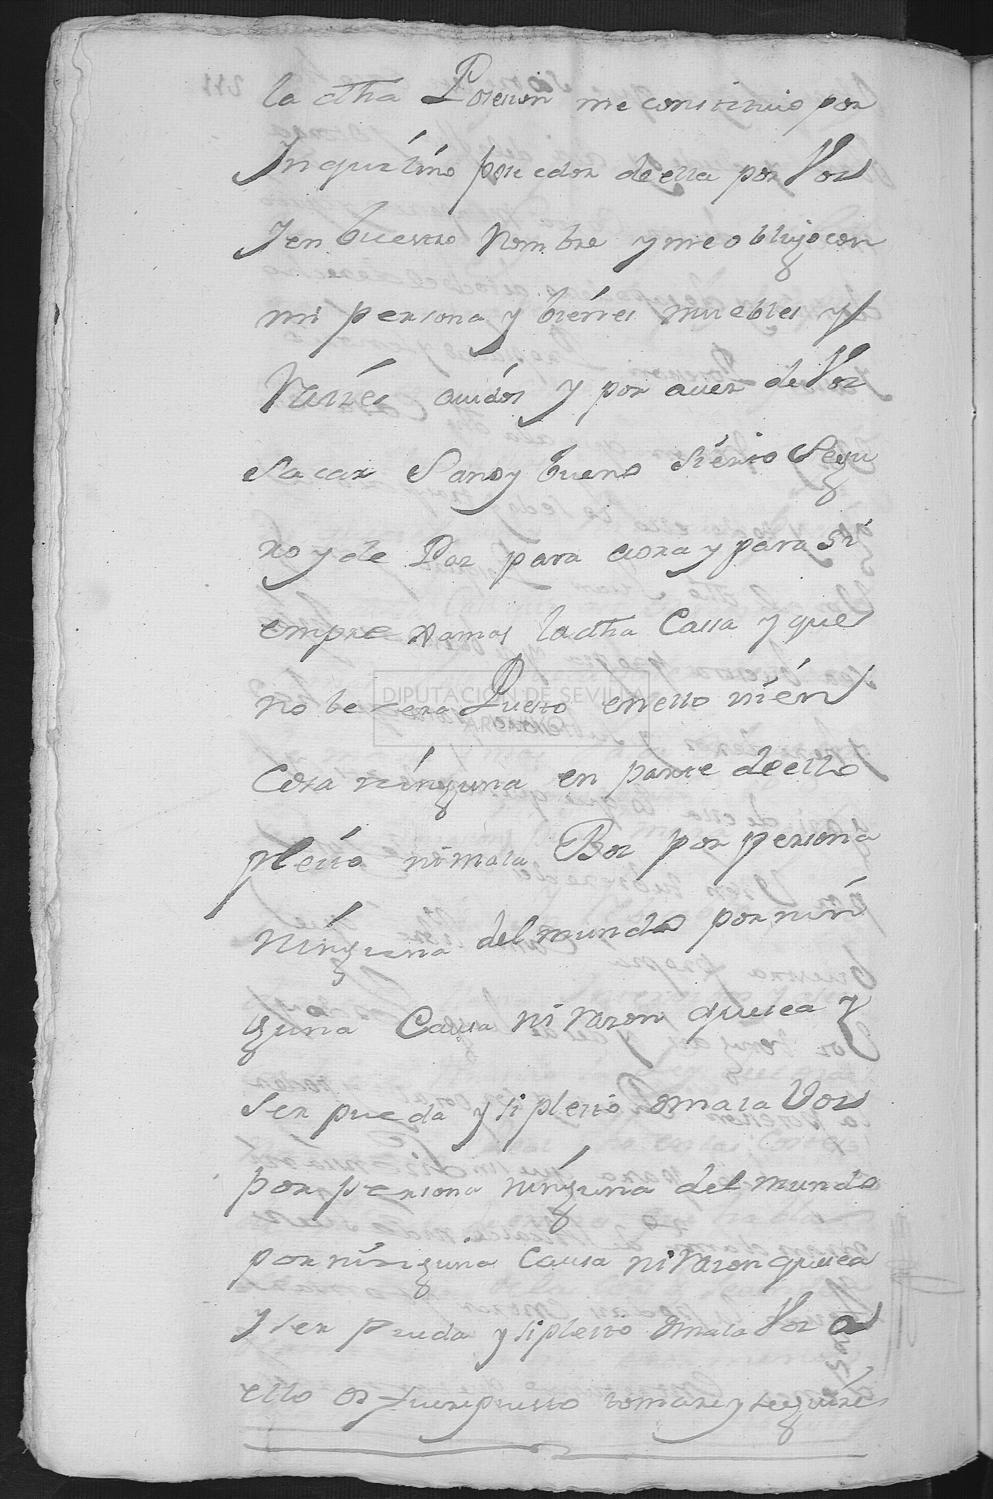 la dha Posesion me constituio por
Inquilino pose edor de ella por Vos
y en buestro Nombre y me obligo con
mi persona y biénes muebles y
Raizes auidos y por auer de Vos
sacar Sano y bueno siérto Segu
ro y de Paz para aora y para si
empre xamas la dha Cassa y que
no be sera Puesto en ello ni én
DIPUTACIÓN DE SEVILLA
Cosa ninguna en parte de ello
pleito ni mala Boz por persona
Ninguna del mundo por nin
guna Causa ni Razon que sea y
Ser pueda y si pleito o mala Vos
por persona ninguna del mundo
por ninguna Causa ni Razon que sea
y ser pueda y si pleito o mala Vos a
ello os fuere puesto tomare y seguire